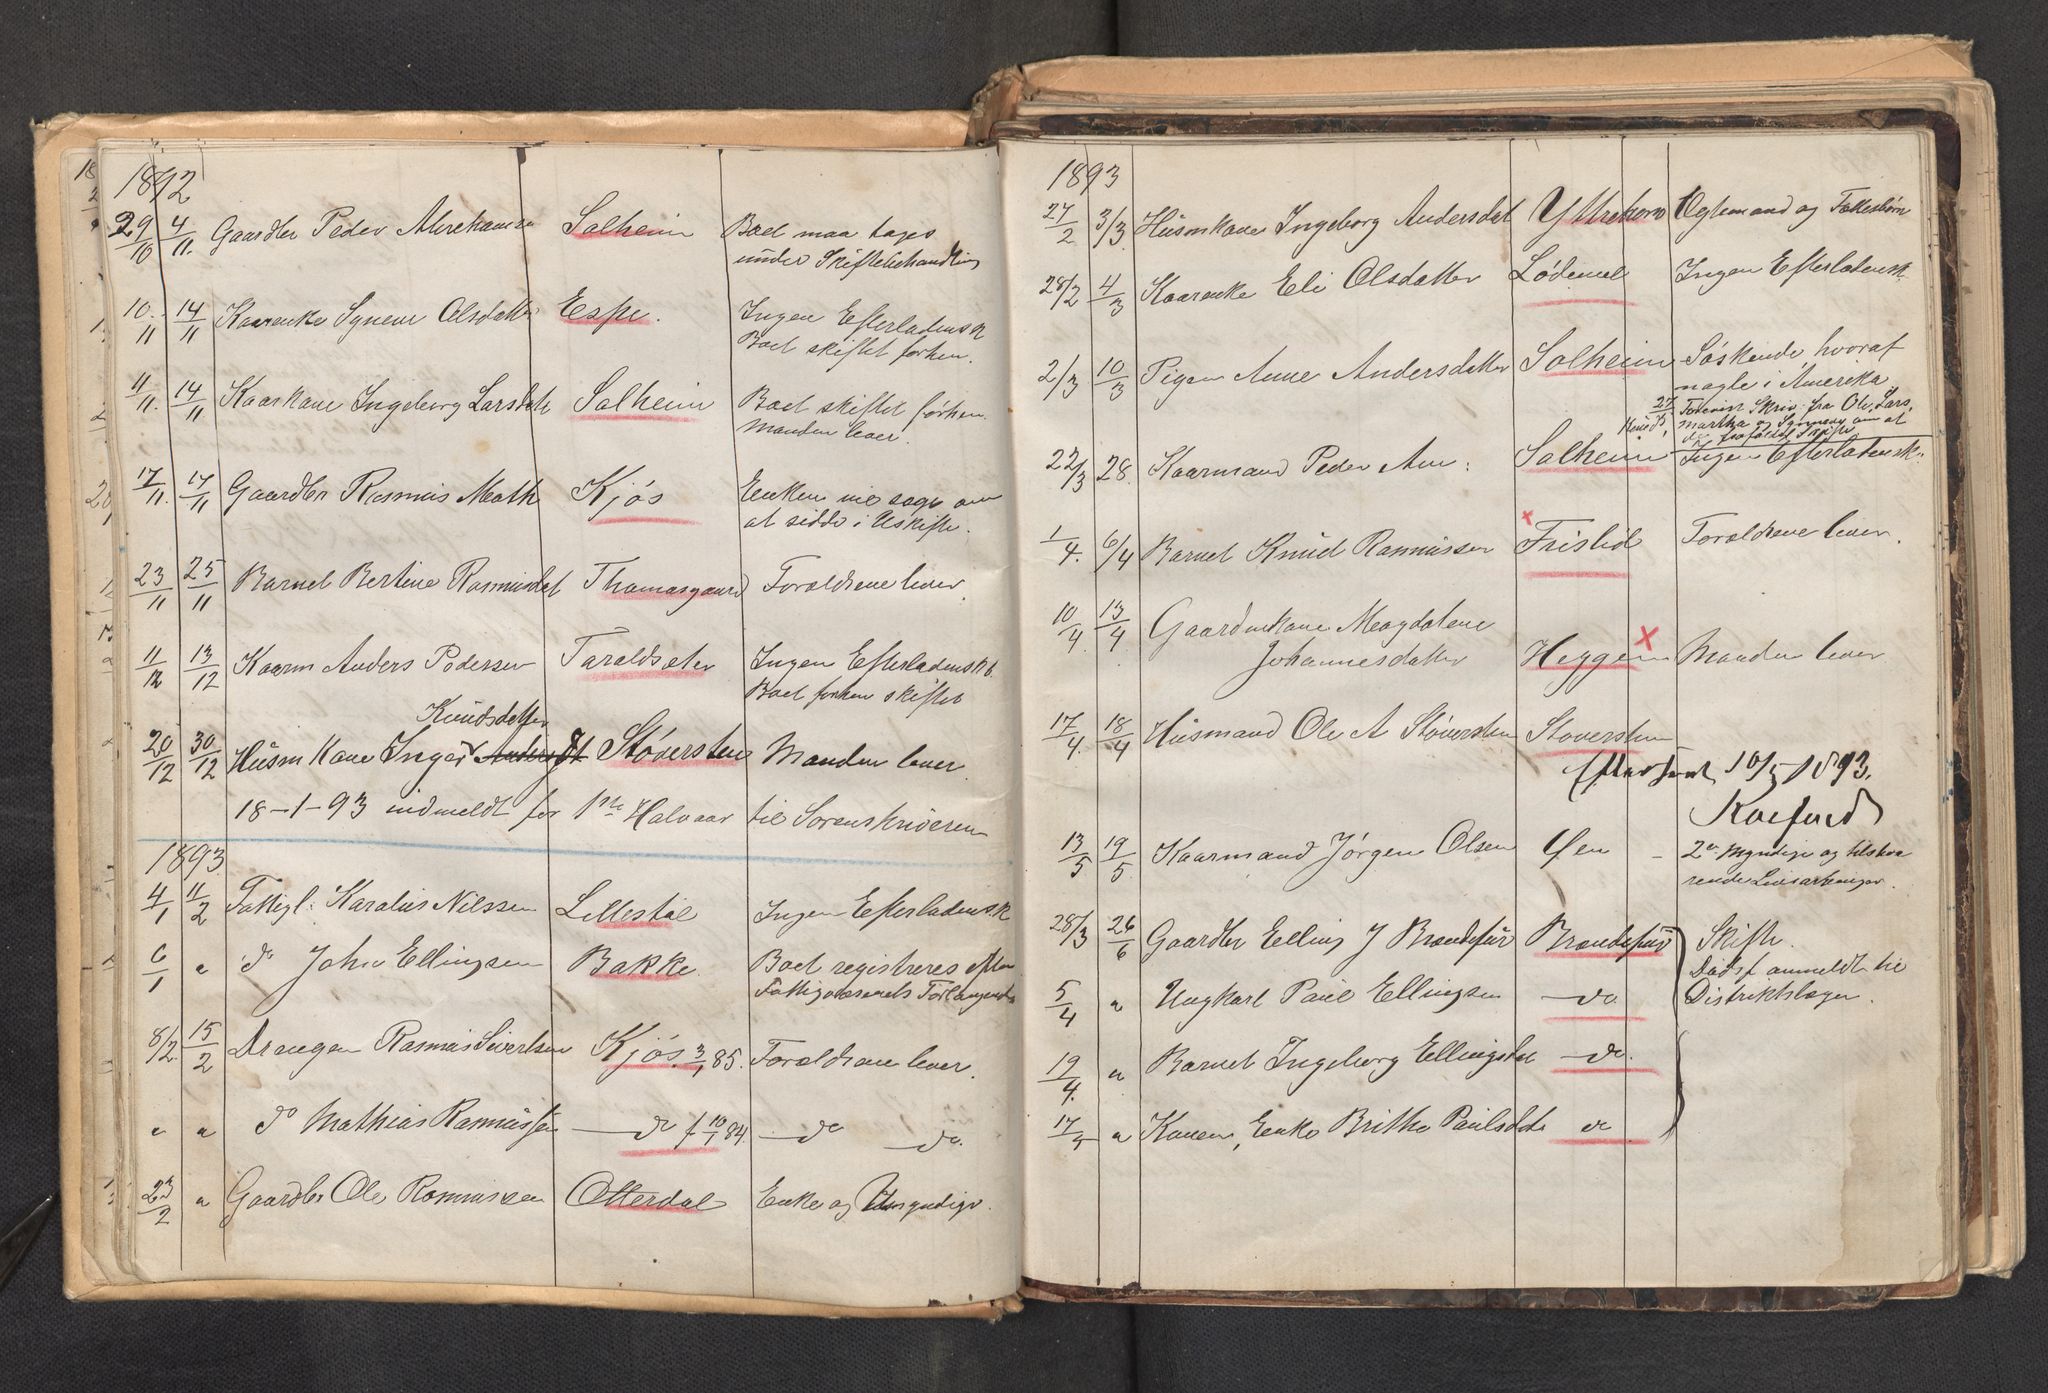 1892
29/10 4/11. Gaardbr Peder Abrahamse Solheim Boet maa tages
under Skiftebehandling
10/11 14/11 Kaarenke Synøve Olsdatte Espe. Ingen Efterladensk
Boet skiftet forhen.
11/11. 14/11 Kaarkone Ingeborg Larsdatte Solheim Boet skiftet forhen.
Manden lever.
17/11. 17/11 Gaardbr Rasmus Math Kjøs Enken vil søge om
at sidde i Uskifte.
23/11 25/11 Barnet Bertine Rasmusdat Thomasgaard Forældrene lever.
11/12 13/12 Kaarm Anders Pedersen Taraldsæter Ingen Efterladensk.
Boet forhen skiftet
Knudsdatter
20/12 30/12 Husm Kone Inger Andersdt Støversten Manden lever.
18-1-93 indmeldt for Halvaar til Sorenskriveren
1893
4/1 11/2 Fattigl: Karolus Nilssen Lillestøl Ingen Efterladensk
6/1 " do John Ellingsen Bakke. Boet registreres efter
Fattigvæsenets Forlangende
8/2. 15/2 Drengen Rasmus Sivertsen Kjøs. 3/1 85. Forældrene lever.
" " do Mathias Rasmussen do f 10/1 84 do do.
23/2 " Gaardbr Ole Rasmussen Otterdal Enke og Umyndige.
1893
27/2 3/3. Husmkone Ingeborg Andersdat Yttrehorn Ægtemand og Fællesbørn
28/2 4/3 Kaarenke Eli Olsdatter Lødemel Ingen Efterladensk.
2/3 10/3 Pigen Anne Andersdatter Solheim Søskende, hvoraf
nogle i Amerika
27/ Forevist Skriv. fra Ole, Lars,
Knud, Martha og Synneva om at
frafalde Skifte
22/3 28. Kaarmand Peder Am: Solheim Ingen Efterladensk.
1/4. 6/4 Barnet Knud Rasmussen Frislid Forældrene lever.
10/4. 13/4 Gaardmkone Magdalene
Johannesdatter Heggen Manden lever
17/4. 18/4 Husmand Ole A Støversten Støversten
Efterseet 10/5 1893.
13/5 19/5 Kaarmand Jørgen Olsen Øen - 2 Myndige og tilstedeværende Livsarvinger.
28/3 26/6 Gaardbr Elling J Brandsfur Brandsfur Skifte.
Dødsf anmeldt til
5/4 " Ungkarl Paul Ellingsen do Distriktslægen.
19/4. " Barnet Ingeborg Ellingsdat do.
17/5 " Konen, Enke Brithe Paulsdat do